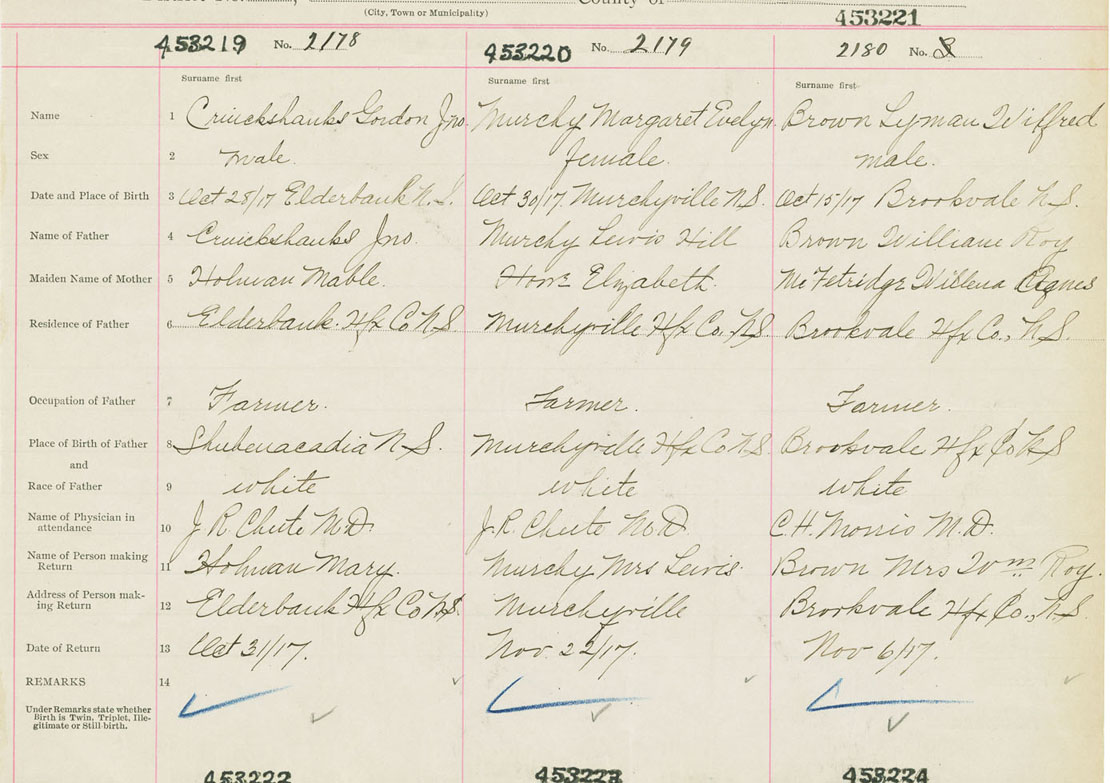 (City, Town or Municipality)
County of
453221
453219 No. 2178
453220 No. 2179
2180 No.
Surname first Surname first Surname first
Name 1 Cruickshanks Gordon Jno. Murchy Margaret Evelyn. Brown Lyman Wilfred
Sex 2 male. female. male.
Date and Place of Birth 3 Oct 28/17 Elderbank N.S. Oct 30/17. Murchyville N.S. Oct 15/17 Brookvale N.S.
Name of Father 4 Cruickshanks Jno. Murchy Lewis Hill Brown William Roy
Maiden Name of Mother 5 Holman Mable. Elizabeth. McFetridge Willena Agnes
Residence of Father 6 Elderbank Hfx Co N.S Murchyville Hfx Co. N.S Brookvale Hfx Co., N.S.
Occupation of Father 7 Farmer. Farmer. Farmer.
Place of Birth of Father 8 Shubenacadia N.S. Murchyville Hfx Co N.S. Brookvale Hfx Co N.S
and
Race of Father 9 white white white
Name of Physician in attendance 10 J.R. Chute M.D. J.R. Chute M.D. C.H. Morris M.D.
Name of Person making Return 11 Holman Mary. Murchy Mrs Lewis. Brown Mrs Wm Roy.
Address of Person making Return 12 Elderbank Hfx Co N.S. Murchyville Brookvale Hfx Co., N.S
Date of Return 13 Oct 31/17. Nov 22/17. Nov 6/17.
REMARKS 14
Under Remarks state whether
Birth is Twin, Triplet, Ille-
gitimate or Still-birth.
453222 453223 453224